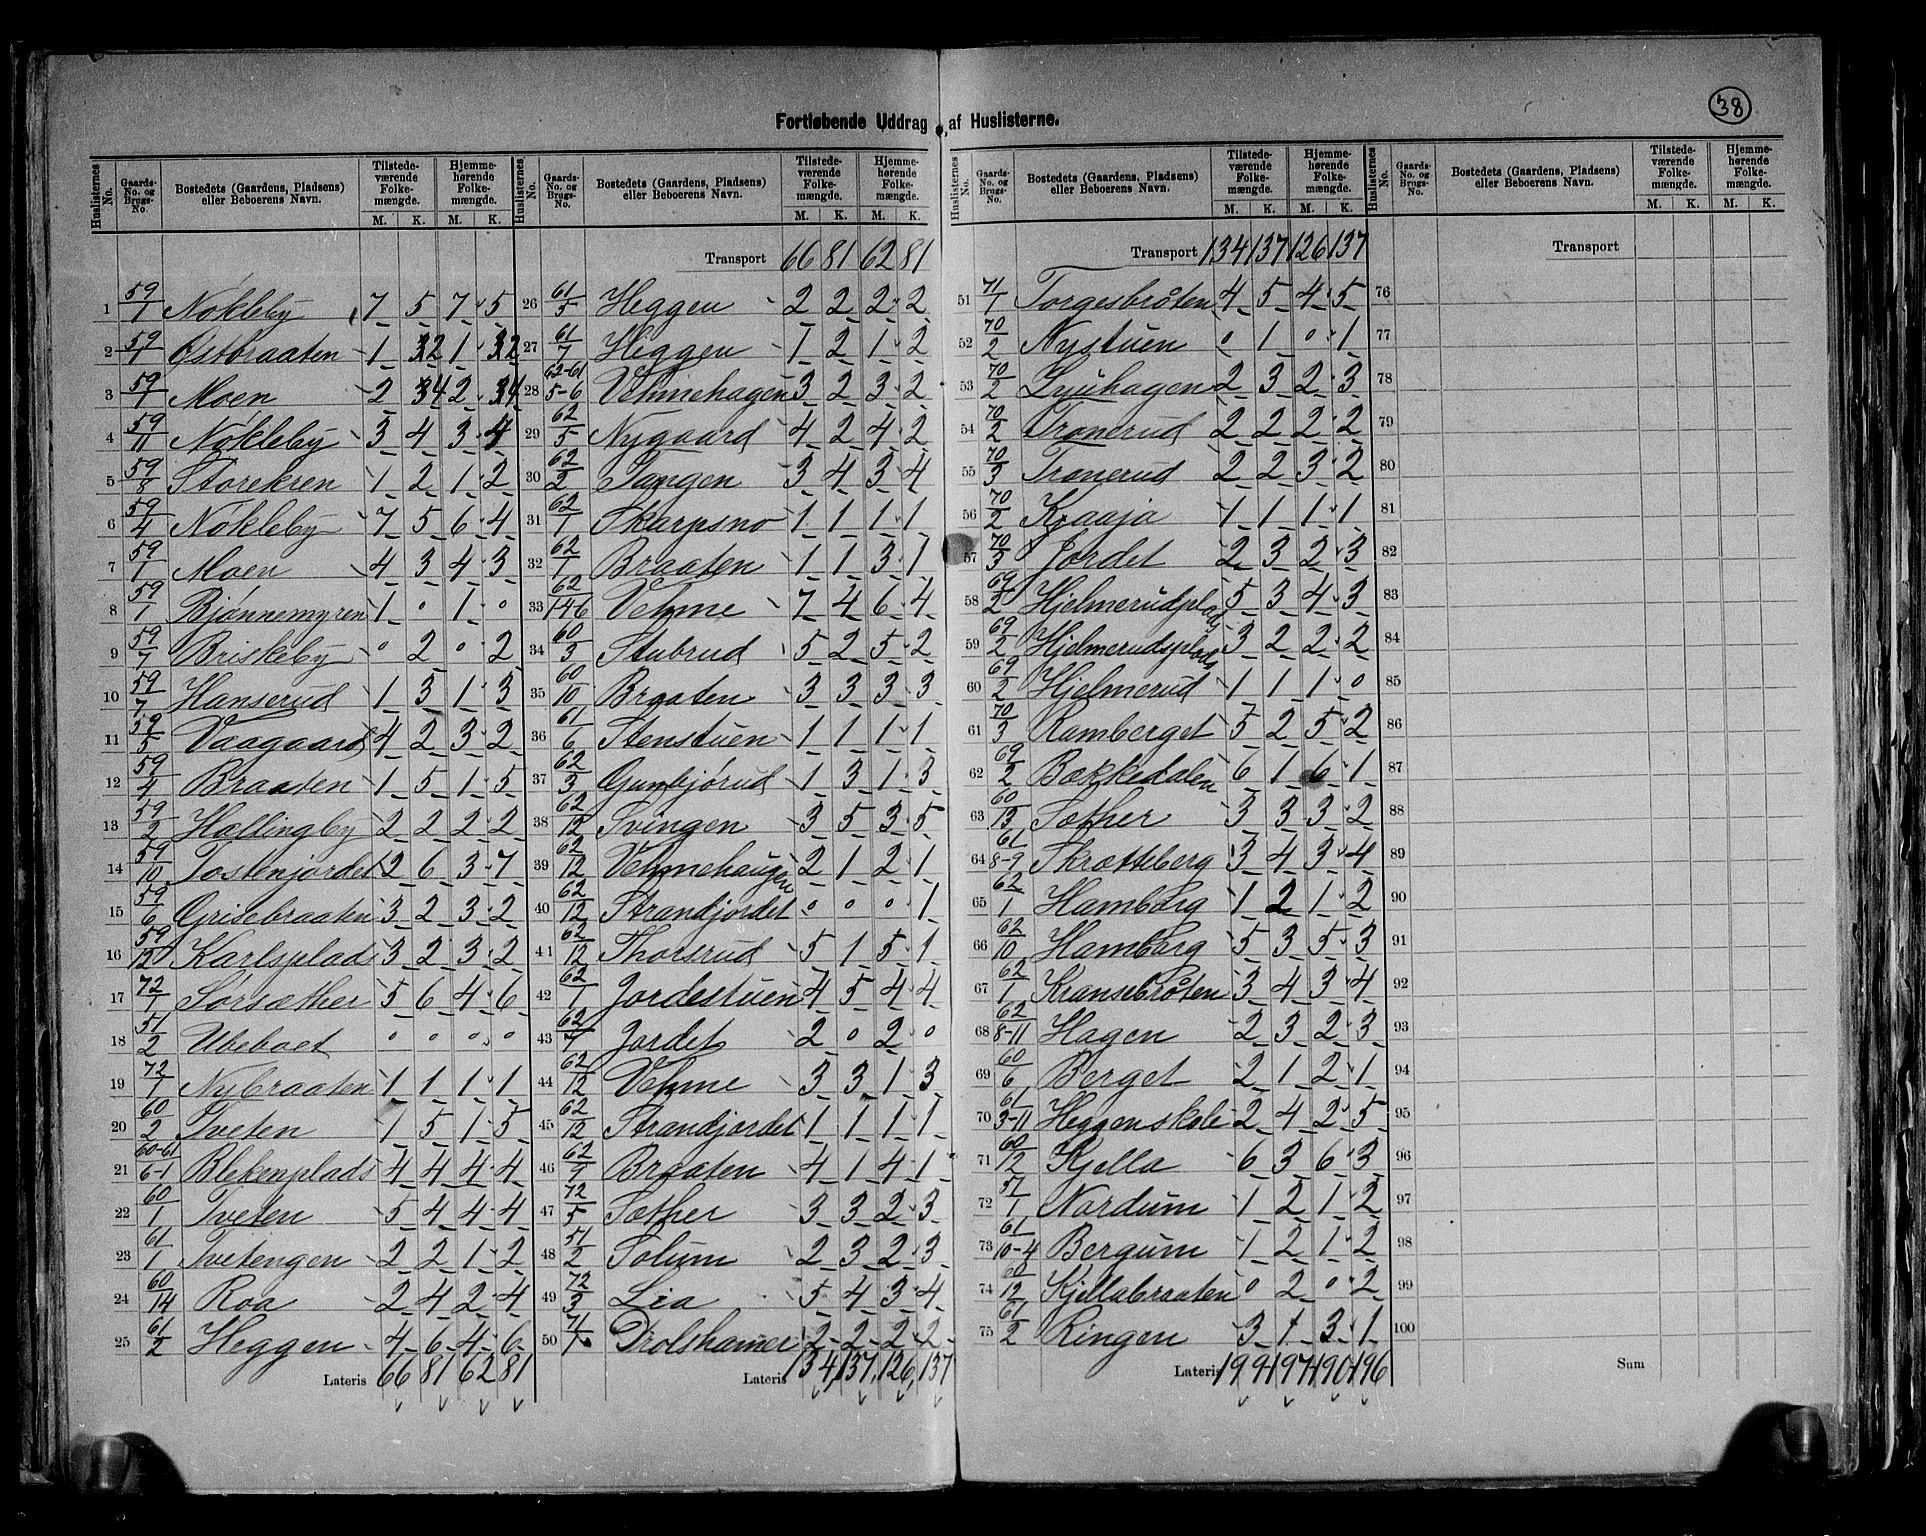 38
Fortløbende Uddrag af Huslisterne.
Huslisternes No. Gaards-No. og Brugs-No. Bostedets (Gaardens, Pladsen) eller Beboerens Navn. Tilstedeværende Folkemængde. M. K. Hjemmehørende Folkemængde. M. K.
1 59/1 Nökleby 7 5 7 5
2 59/1 Östbraaten 1 2 1 2
3 59/1 Moen 2 4 2 4
4 59/11 Nökleby 3 4 3 4
5 59/8 Storekren 1 2 1 2
6 59/4 Nökleby 7 5 6 4
7 59/1 Moen 4 3 4 3
8 59/1 Bjønnemyren 1 0 1 0
9 59/7 Briskeby 0 2 0 2
10 59/7 Hanserud 1 3 1 3
11 59/5 Vaagaard 4 2 3 2
12 59/4 Braaten 1 5 1 5
13 59/2 Hællingby 2 2 2 2
14 59/10 Tostenjordet 2 6 3 7
15 59/6 Grisebraaten 3 2 3 2
16 59/12 Karlsplads 3 2 3 2
17 72/1 Sørsæther 5 6 4 6
18 51/2 Ubeboet 0 0 0 0
19 72/1 Nybraaten 1 1 1 1
20 60/2 Tveten 1 5 1 5
21 60-61/6-1 Blekenplads 4 4 4 4
22 60/1 Tveten 5 4 4 4
23 61/1 Tvetengen 2 2 1 2
24 60/14 Roa 2 4 2 4
25 61/2 Heggen 4 6 4 6
Lateris 66 81 62 81
Huslisternes No. Gaards-No. og Brugs-No. Bostedets (Gaardens, Pladsen) eller Beboerens Navn. Tilstedeværende Folkemængde. M. K. Hjemmehørende Folkemængde. M. K.
Transport 66 81 62 81
26 61/5 Heggen 2 2 2 2
27 61/7 Heggen 1 2 1 2
28 62-61/5-6 Vehmehagen 3 2 3 2
29 62/5 Nygaard 4 2 4 2
30 62/2 Tangen 3 4 3 4
31 62/1 Skarpsno 1 1 1 1
32 62/1 Braaten 1 1 3 1
33 62/146 Vehme 7 4 6 4
34 60/3 Stubrud 5 2 5 2
35 60/10 Braaten 3 3 3 3
36 61/6 Stenstuen 1 1 1 1
37 62/3 Gunbjørud 1 3 1 3
38 62/12 Svingen 3 5 3 5
39 62/12 Vehmehaugen 2 1 2 1
40 62/12 Strandjordet 0 0 0 1
41 62/12 Thorsrud 5 1 5 1
42 62/1 Jordestuen 4 5 4 4
43 62/7 Jordet 2 0 2 0
44 62/12 Vehme 3 3 1 3
45 62/12 Strandjordet 1 1 1 1
46 62/9 Braaten 4 1 4 1
47 72/5 Sæther 3 3 2 3
48 51/2 Solum 2 3 2 3
49 72/3 Lia 5 4 3 4
50 71/1 Trolshamer 2 2 2 2
Lateris 134 137 126 137
Huslisternes No. Gaards-No. og Brugs-No. Bostedets (Gaardens, Pladsen) eller Beboerens Navn. Tilstedeværende Folkemængde. M. K. Hjemmehørende Folkemængde. M. K.
Transport 134 137 126 137
51 71/1 Torgesbråten 4 5 4 5
52 70/2 Nystuen 0 1 0 1
53 70/2 Lyuhagen 2 3 2 3
54 70/2 Tronerud 2 2 2 2
55 70/3 Tronerud 2 2 3 2
56 70/2 Kjaaja 1 1 1 1
57 70/3 Jordet 2 3 2 3
58 69/2 Hjelmerudplads 5 3 4 3
59 69/2 Hjelmerudsplads 3 2 2 2
60 69/2 Hjelmerud 1 1 1 0
61 70/3 Ramberget 5 2 5 2
62 69/2 Bækkedalen 6 1 6 1
63 60/13 Sæther 3 3 3 2
64 61/8-9 Skrætteberg 3 4 3 4
65 62/1 Hamborg 1 2 1 2
66 62/10 Hamborg 5 3 5 3
67 62/1 Kransebråten 3 4 3 4
68 62/8-11 Hagen 2 3 2 3
69 60/6 Berget 2 1 2 1
70 61/3-11 Heggenskole 2 4 2 5
71 60/12 Kjella 6 3 6 3
72 51/1 Nordum 1 2 1 2
73 61/10-4 Bergum 1 2 1 2
74 60/12 Kjellabraaten 0 2 0 2
75 61/2 Ringen 3 1 3 1
Lateris 199 197 190 196
Huslisternes No. Gaards-No. og Brugs-No. Bostedets (Gaardens, Pladsen) eller Beboerens Navn. Tilstedeværende Folkemængde. M. K. Hjemmehørende Folkemængde. M. K.
Transport
76
77
78
79
80
81
82
83
84
85
86
87
88
89
90
91
92
93
94
95
96
97
98
99
100
Sum